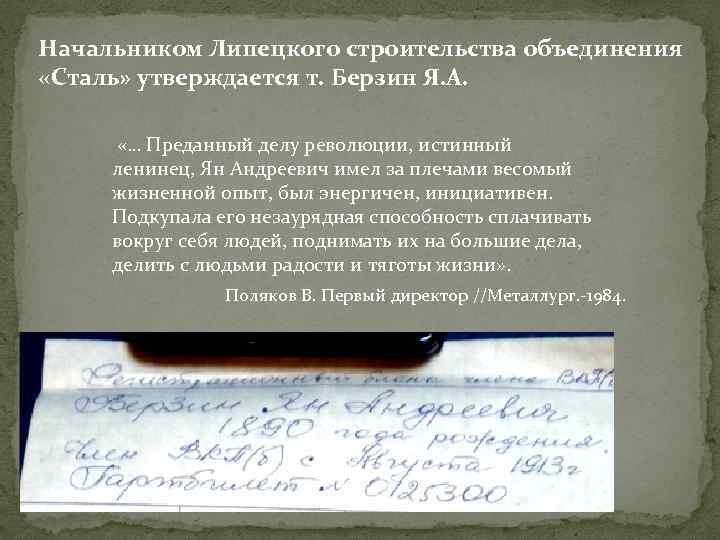 Начальником Липецкого строительства объединения
«Сталь» утверждается т. Берзин Я. А.
«… Преданный делу революции, истинный
ленинец, Ян Андреевич имел за плечами весомый
жизненной опыт, был энергичен, инициативен.
Подкупала его незаурядная способность сплачивать
вокруг себя людей, поднимать их на большие дела,
делить с людьми радости и тяготы жизни» .
Поляков В. Первый директор //Металлург. -1984.
Регистрационный бланк члена ВКП/б
Берзин Ян Андреевич
1890 года рождения.
Член ВКП(б) с Августа 1913 г
Партбилет N 0125300